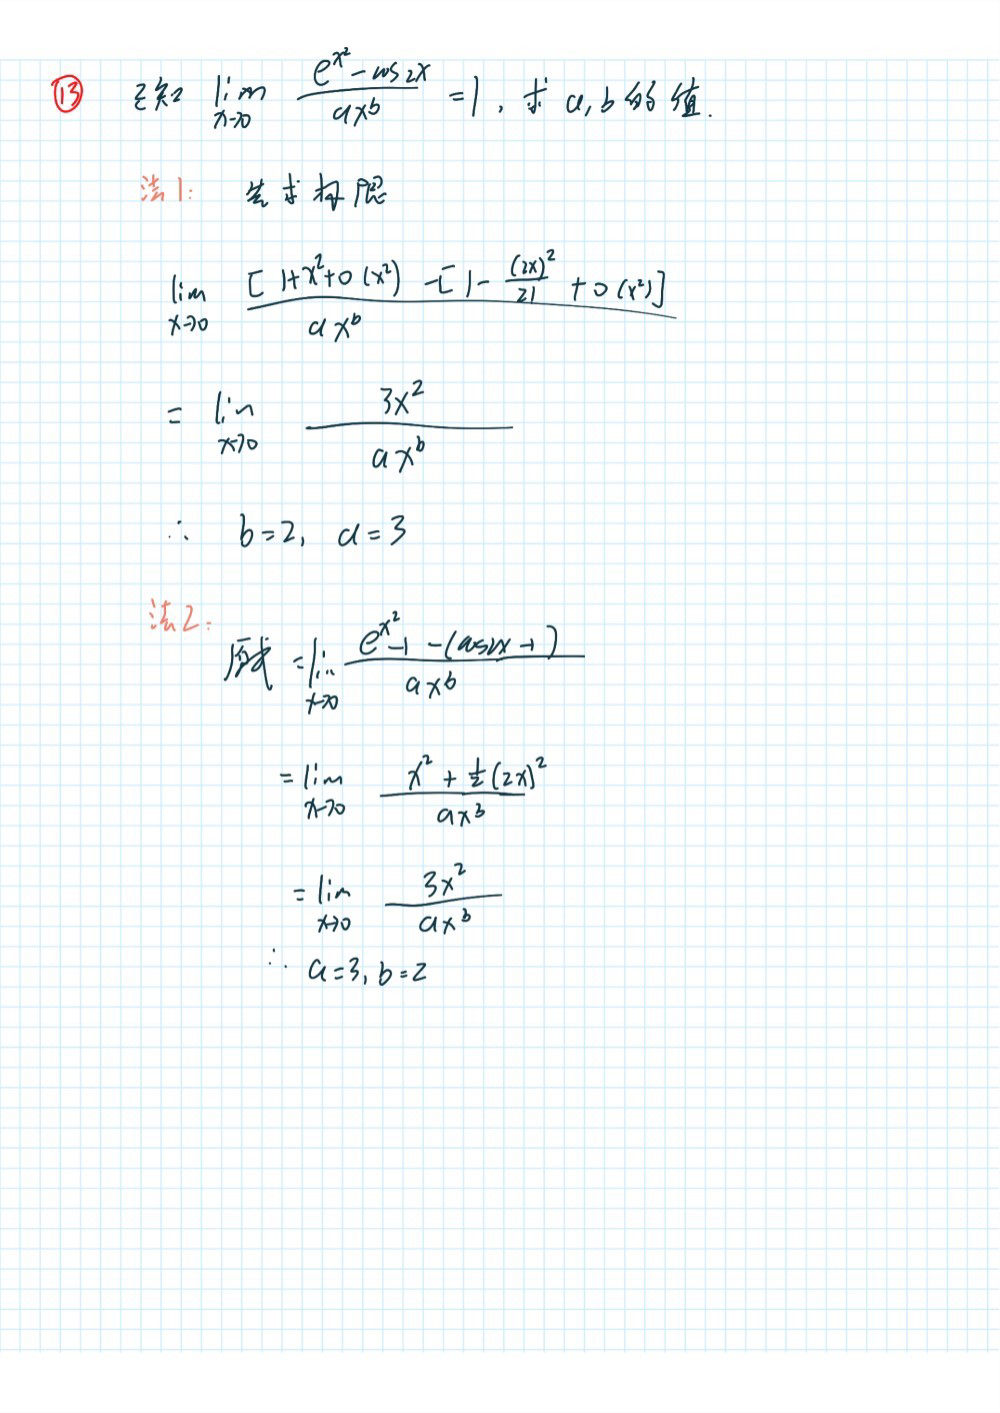 ⑬ 已知 lim x→0 (e^{x^2} - cos2x)/(ax^b) = 1, 求 a, b 的值.
法1: 先求极限
lim x→0 ([1+x^2+o(x^2)] - [1 - (2x)^2/2! + o(x^2)])/(ax^b)
= lim x→0 3x^2/(ax^b)
∴ b=2, a=3
法2:
原式 = lim x→0 (e^{x^2}-1-(cos2x-1))/(ax^b)
= lim x→0 (x^2 + 1/2(2x)^2)/(ax^b)
= lim x→0 3x^2/(ax^b)
∴ a=3, b=2